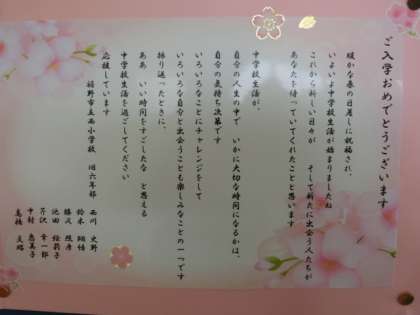 ご入学おめでとうございます
暖かな春の日差しに祝福され、
いよいよ中学校生活が始まりましたね
これから新しい日々が そして新たに出会う人たちが
あなたを待っていてくれたことと思います
中学校生活が、
自分の人生の中で いかに大切な時間になるかは、
自分の気持ち次第です
いろいろなことにチャレンジをして
いろいろな自分と出会うことも楽しみなことの一つです
振り返ったときに、
ああ いい時間をすごしたな と思える
中学校生活を過ごしてください
応援しています
嬉野市立西小学校 旧六年部
西川 史野
鈴木
藤
池田 絵莉子
芹沢 幸一郎
中村 恵美子
高橋